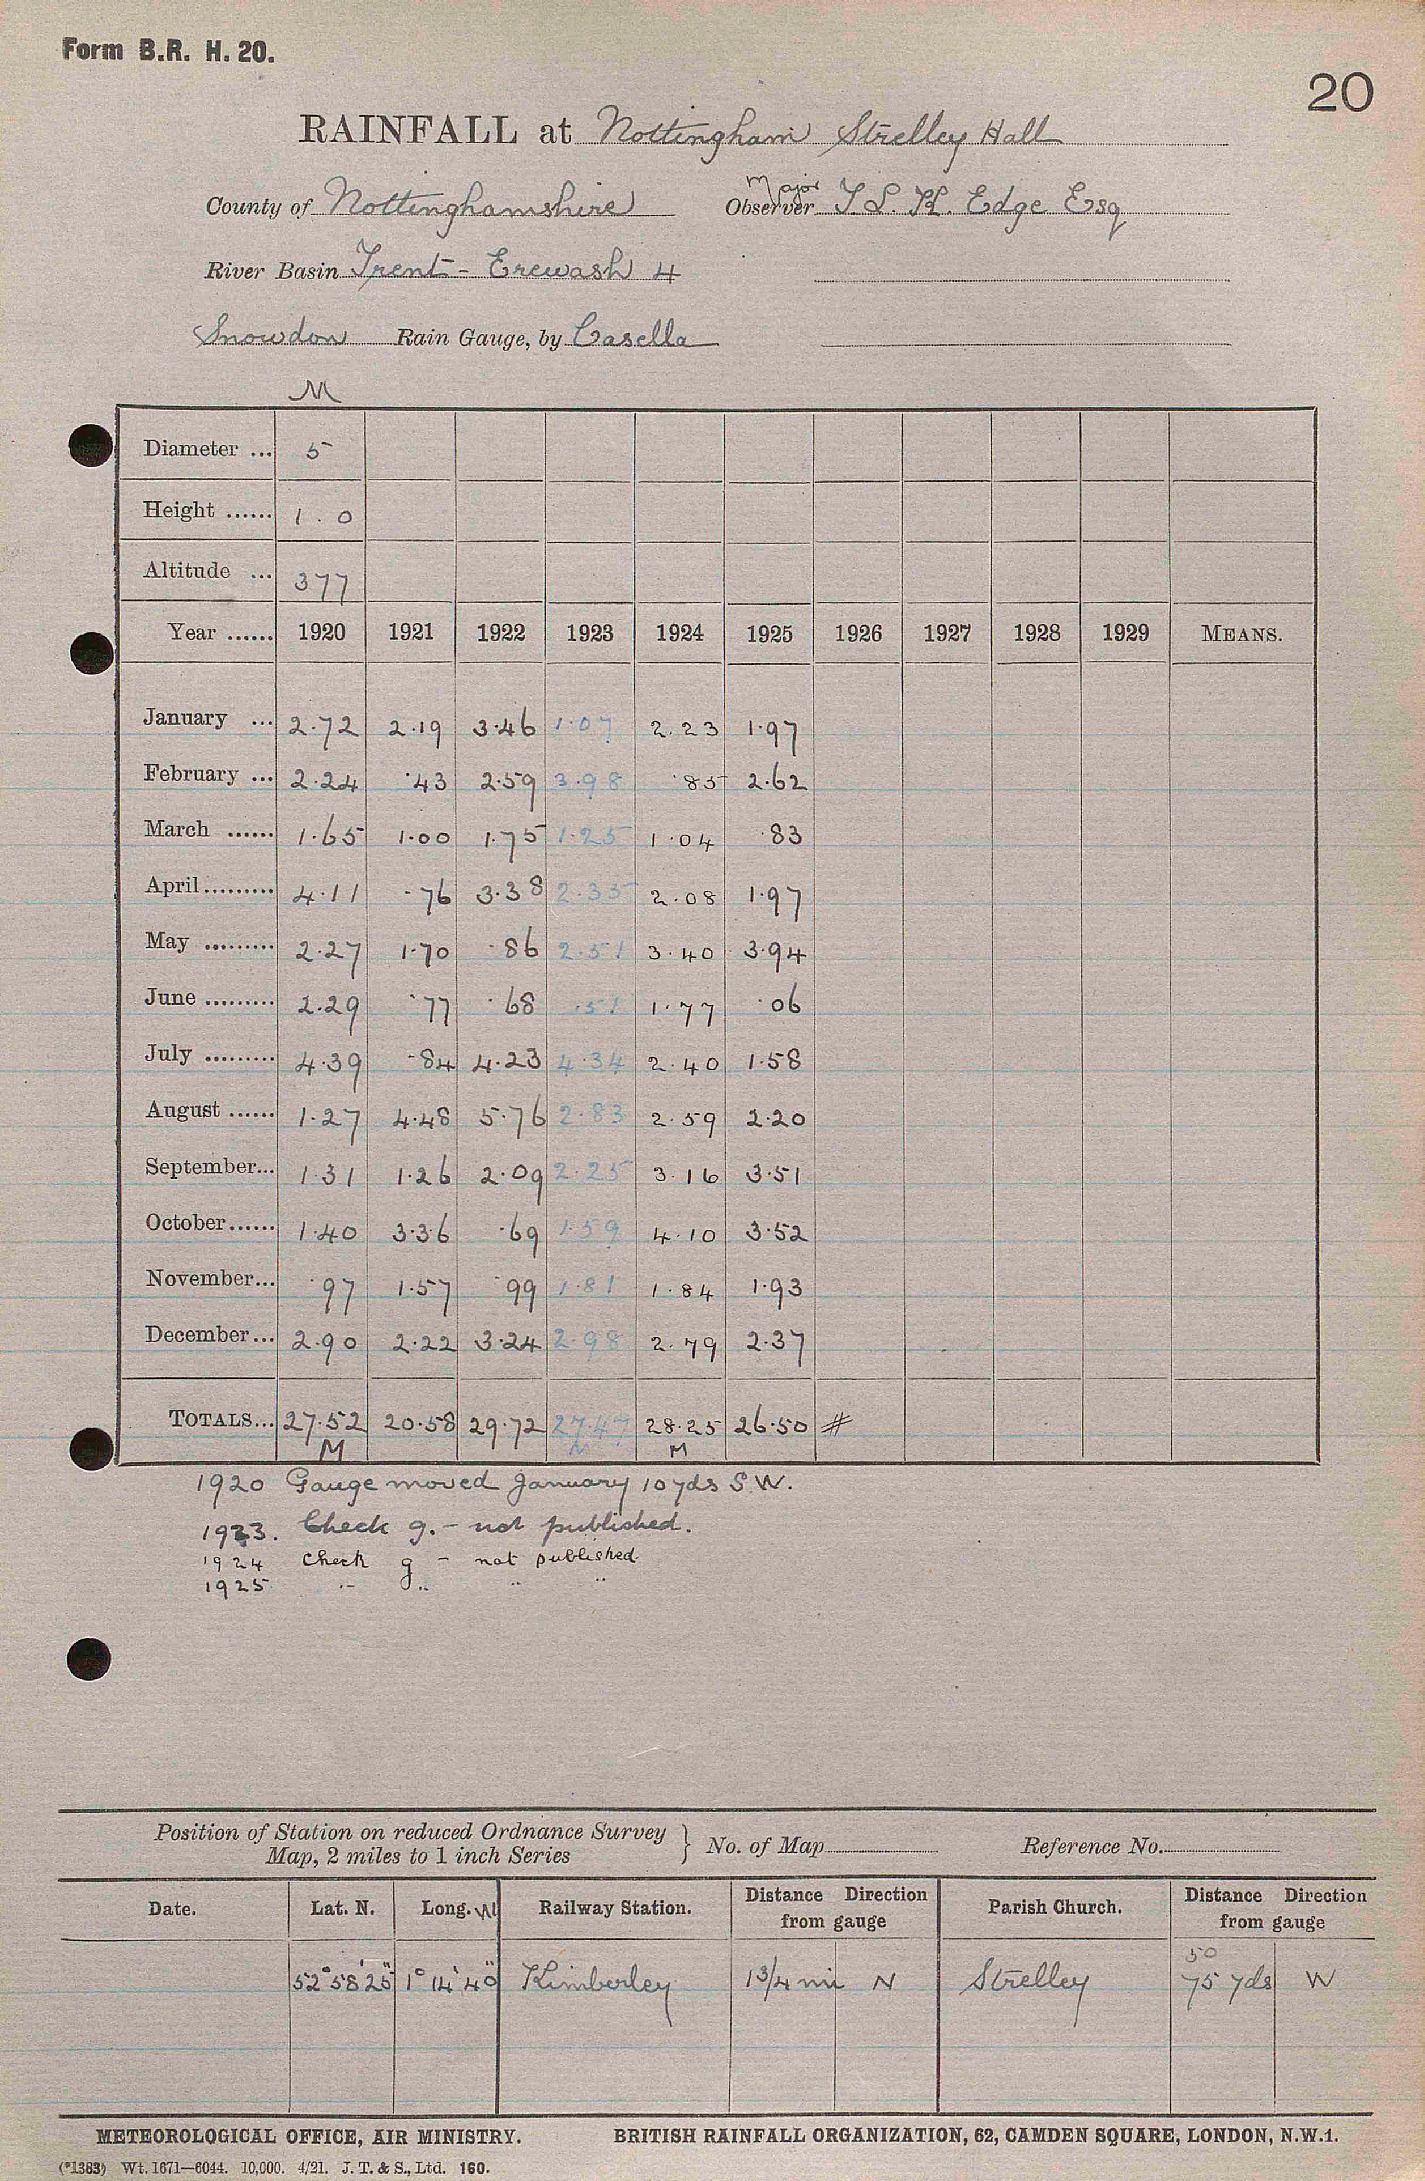 Form B.R. H. 20.
20
RAINFALL at Nottingham Strelley Hall
Major
County of Nottinghamshire Observer T. L. K. Edge Esq
River Basin Trent - Erewash 4
Snowdon Rain Gauge, by Casella
M
Diameter ... 5
Height ...... 1.0
Altitude ... 377
Year ...... 1920 1921 1922 1923 1924 1925 1926 1927 1928 1929 MEANS.
January ... 2.72 2.19 3.46 1.07 2.23 1.97
February ... 2.24 .43 2.59 3.98 .85 2.62
March ...... 1.65 1.00 1.75 1.25 1.04 .83
April ......... 4.11 .76 3.38 2.35 2.08 1.97
May ......... 2.27 1.70 .86 2.51 3.40 3.94
June ......... 2.29 .77 .68 .51 1.77 .06
July ......... 4.39 .84 4.23 4.34 2.40 1.58
August ...... 1.27 4.48 5.76 2.83 2.59 2.20
September... 1.31 1.26 2.09 2.25 3.16 3.51
October...... 1.40 3.36 .69 1.59 4.10 3.52
November... .97 1.57 .99 1.81 1.84 1.93
December... 2.90 2.22 3.24 2.98 2.79 2.37
TOTALS... 27.52 20.58 29.72 27.47 28.25 26.50 #
M M M
1920 Gauge moved January 10 yds S.W.
1923. Check g. - not published.
1924 Check g - not published
1925 .. g.. .. ..
Position of Station on reduced Ordnance Survey
Map, 2 miles to 1 inch Series } No. of Map Reference No.
Date. Lat. N. Long. W Railway Station. Distance Direction from gauge Parish Church. Distance Direction from gauge
50
52° 58' 25" 1° 14' 40" Kimberley 1 3/4 mi N Strelley 75 yds W
METEOROLOGICAL OFFICE, AIR MINISTRY. BRITISH RAINFALL ORGANIZATION, 62, CAMDEN SQUARE, LONDON, N.W.1.
(*1383) Wt. 1671—6044. 10,000. 4/21. J. T. & S., Ltd. 160.